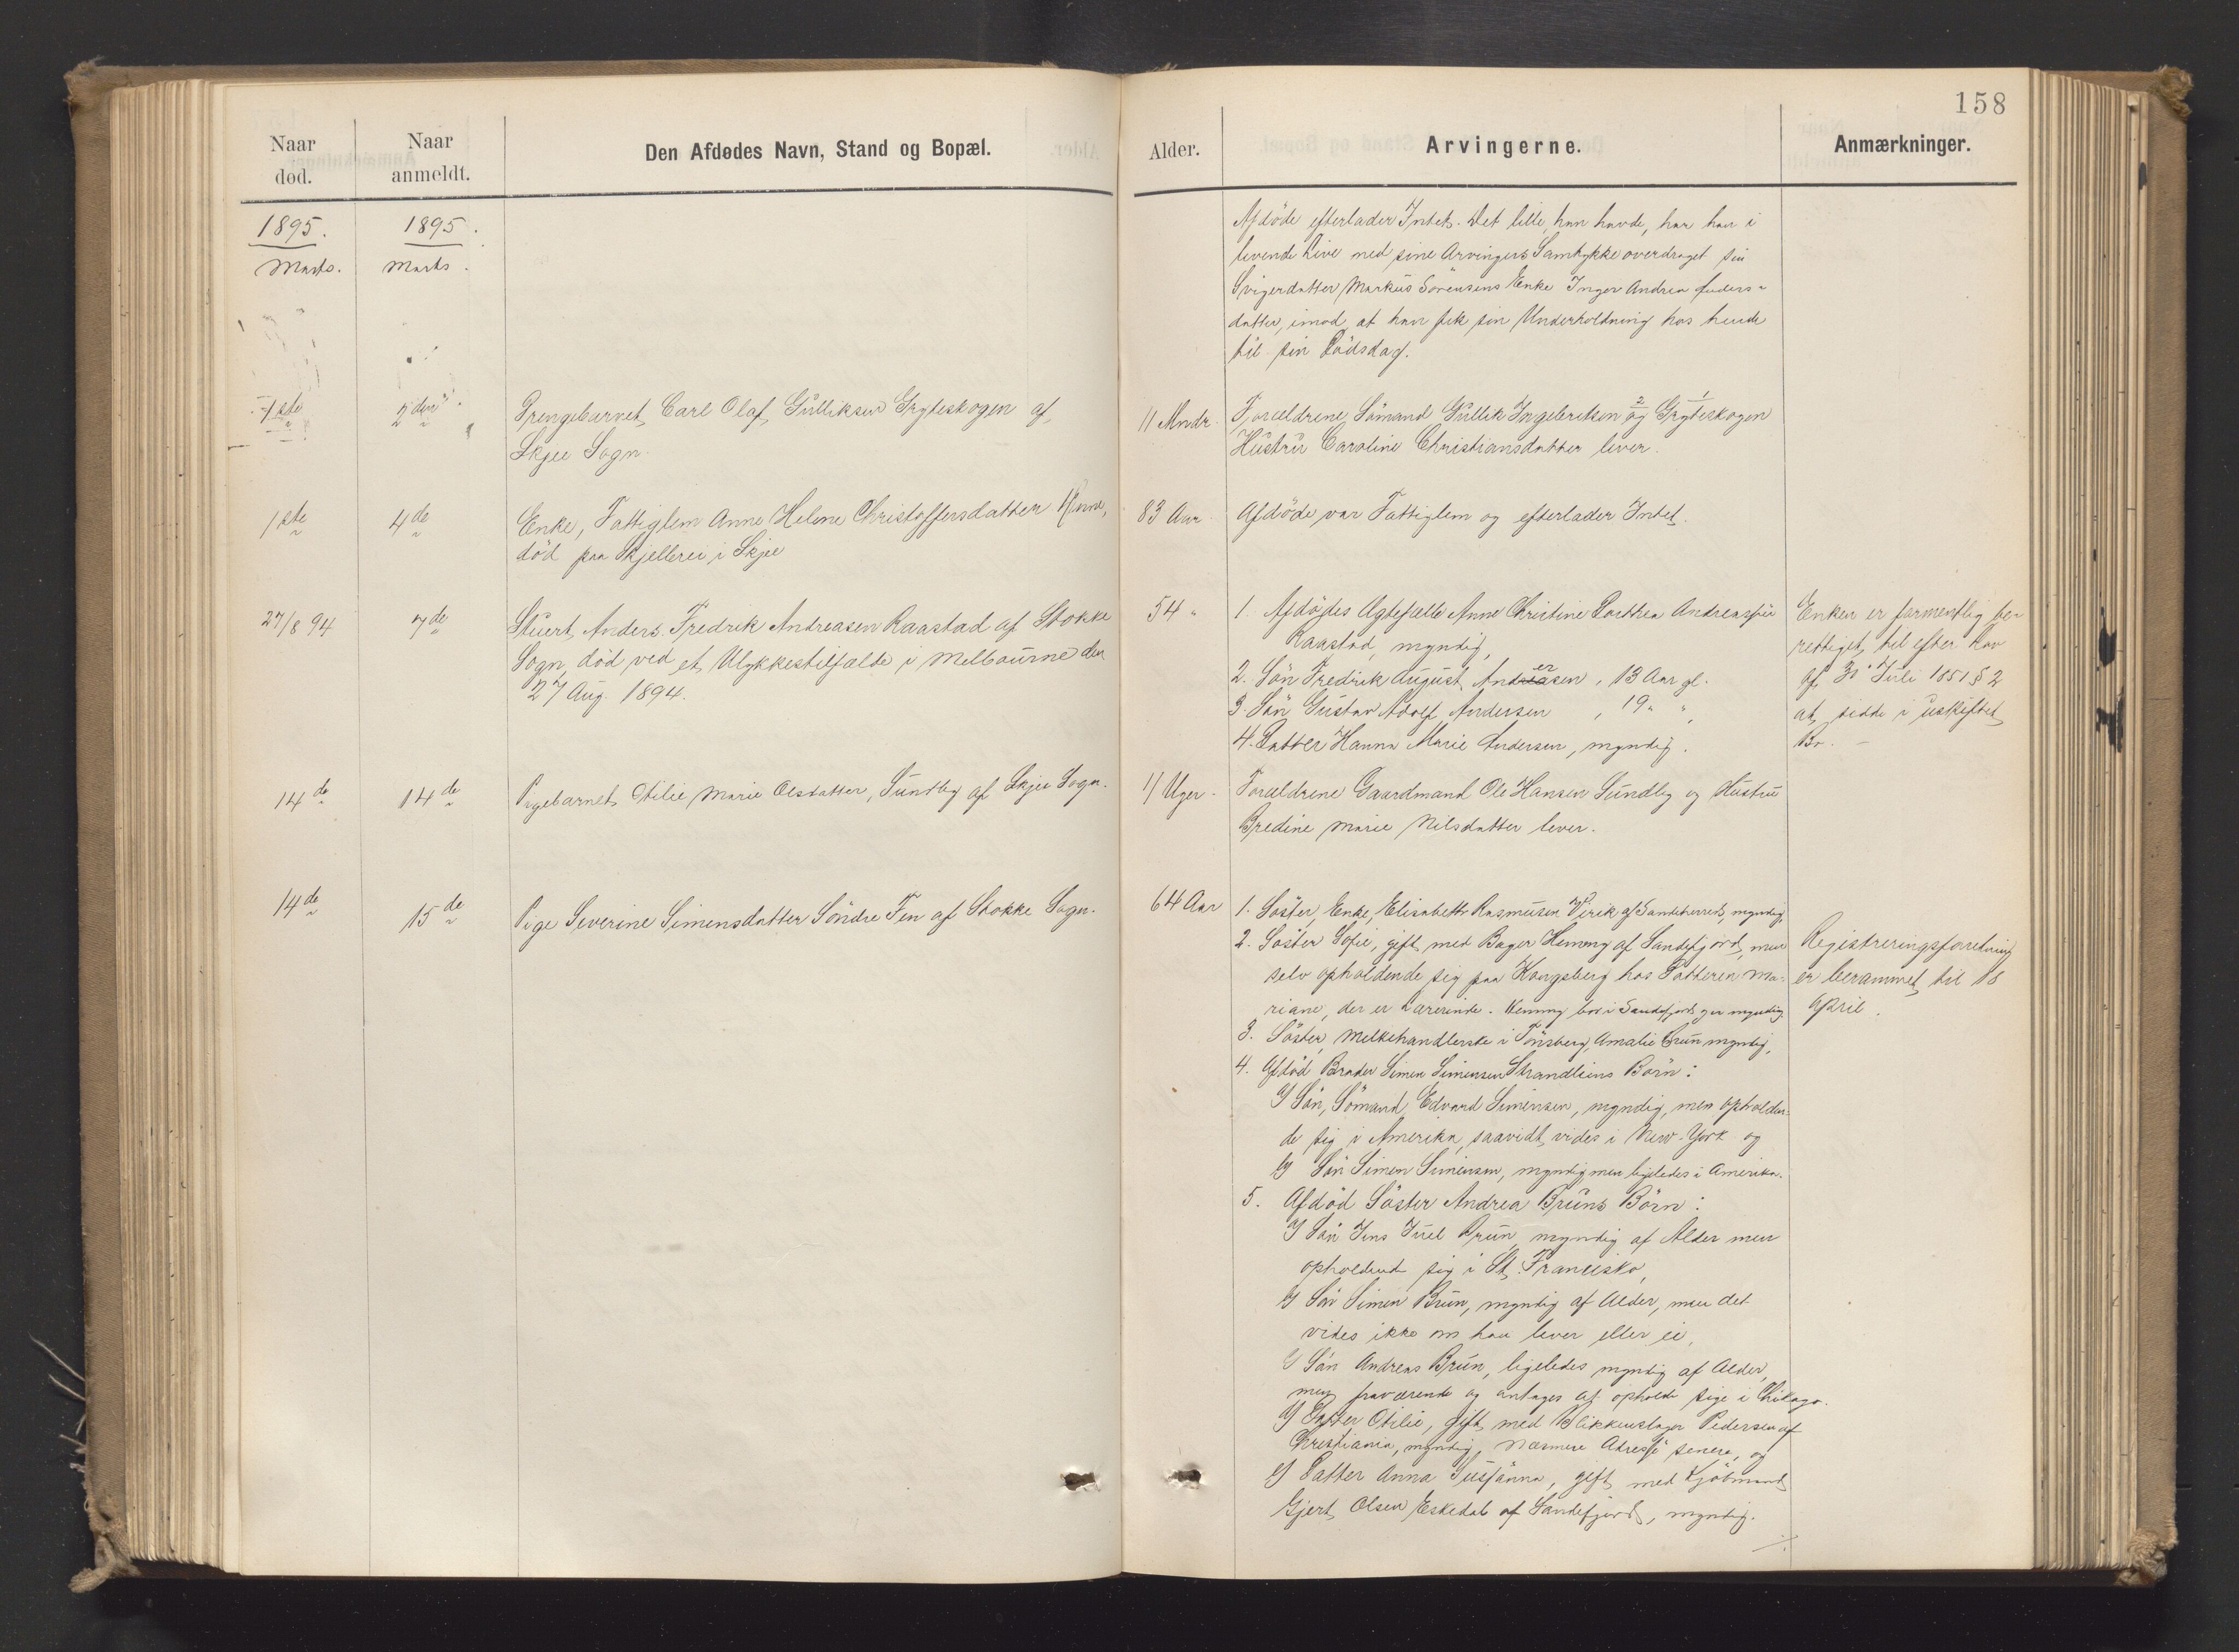 158
Naar død.
Naar anmeldt.
Den Afdødes Navn, Stand og Bopæl.
Alder.
Arvingerne.
Anmærkninger.
1895.
1895.
Marts.
Marts.
Afdöde efterlader Intet. Det lille, han havde, har han i
levende Live med sine Arvingers Samtykke overdraget sin
Svigerdatter Markus Sörensens Enke Inger Andrea Anders-
datter, imod at han fik sin Underholdning hos hende
til sin Dödsdag.
1ste
2den
Drengebarnet Carl Olaf Gulliksen Gryteskogen af
Skjee Sogn.
11 Mndr.
Forældrene Sömand Gullik Ingebretsen 2 og 1 Gryteskogen
Hustru Caroline Christiansdatter lever.
1ste
4de
Enke, Fattiglem Anne Helene Christoffersdatter
död paa Skjellerei i Skjee
83 Aar
Afdöde var Fattiglem og efterlader Intet.
27/8 94
7de
Stuert Anders Fredrik Andreasen Raastad af Stokke
Sogn, död ved et Ulykkestilfælde i Melbourne den
27 Aug. 1894.
54 "
1. Afdödes Ægtefælle Anne Christine Dorthea Andreasen
Raastad, myndig,
2. Sön Fredrik August Andersen, 13 Aar gl.
3. Sön Gustav Adolf Andersen, 19 " "
4. Datter Hanna Marie Andersen, myndig.
Enken er formentlig be-
rettiget til efter Lov
af 30 Juli 1851 § 2
at sidde i uskiftet
Bo. –
14de
14de
Pigebarnet Otilie Marie Olsdatter, Sundby af Skjee Sogn.
11 Uger.
Forældrene Gaardmand Ole Hansen Sundby og Hustru
Gredine Marie Nilsdatter lever.
14de
15de
Pige Severine Simensdatter Söndre Fen af Stokke Sogn.
64 Aar
1. Söster, Enke, Elisabeth Rasmusen Virik af Sandeherred, myndig,
2. Söster Sofie, gift med Bager Hemmy af Sandefjord, men
selv opholdende sig paa Kongsberg hos Datteren Ma-
riane, der er Lærerinde. Hemmy bor i Sandefjord, er myndig.
3. Söster, Melkehandlerske i Tönsberg, Amalie Brun myndig,
4. Afdöd Broder Simen Simensen Strandliens Börn:
1) Sön, Sömand Edvard Simensen, myndig, men opholden-
de sig i Amerika, saavidt vides i New-York og
2) Sön Simen Simensen, myndig men ligeledes i Amerika.
5. Afdöd Söster Andrea Bruns Börn:
1) Sön Jens Juel Brun, myndig af Alder men
opholdend sig i St. Francisko,
2) Sön Simen Brun, myndig af Alder, men det
vides ikke om han lever eller ei,
3) Sön Andreas Brun, ligeledes myndig af Alder,
men fraværende og antages at opholde sig i Chikago.
4) Datter Otilie, gift med Blikkenslager Pedersen af
Christiania, myndig, Næmere Adresse senere, og
5) Datter Anna Susanna, gift med Kjöbmand
Gjert Olsen Eskedal af Sandefjord, myndig.
Registreringsforretning
er berammet til 18
April.